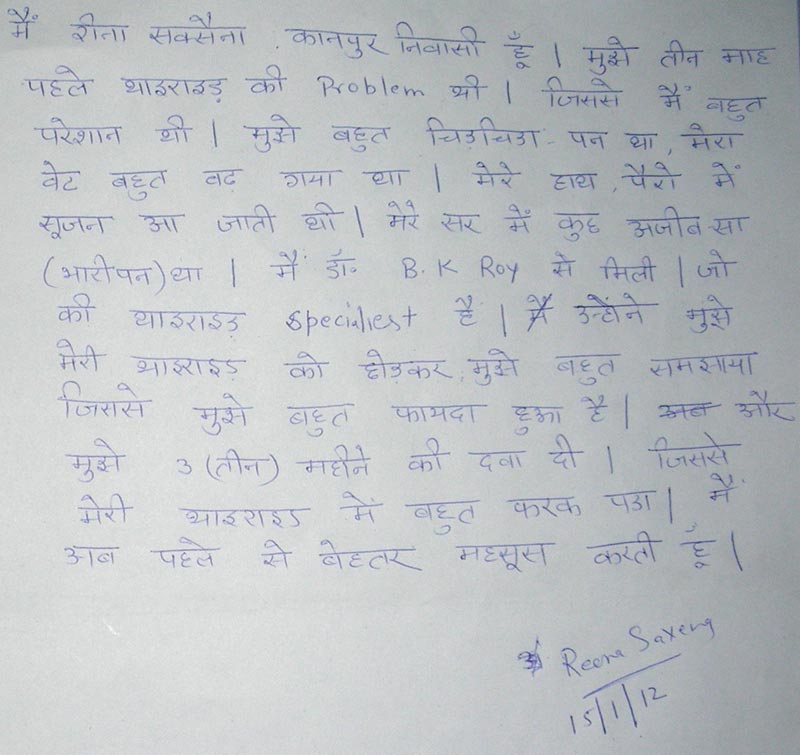 मैं रीना सक्सैना , कानपुर निवासी हूँ | मुझे तीन माह
पहले थाइराइड़ की Problem थी | जिससे मैं बहुत
परेशान थी | मुझे बहुत चिड़चिडा-पन था, मेरा
वेट बहुत बढ़ गया था | मेरे हाथ, पैरो में
सूजन आ जाती थी | मेरे सर में कुछ अजीब-सा
(भारीपन) था | मैं डॉ॰ B.K Roy से मिली | जो
की थाइराइड़ specialiest है | उन्होंने मुझे
मेरी थाइराइड़ को छोड़कर, मुझे बहुत समझाया
जिससे मुझे बहुत फायदा हुआ है | और
मुझे 3 (तीन) महीने की दवा दी | जिससे
मेरी थाइराइड में बहुत फरक पडा | मैं
अब पहले से बेहतर महसूस करती हूँ |
Reena Saxena
15/1/12